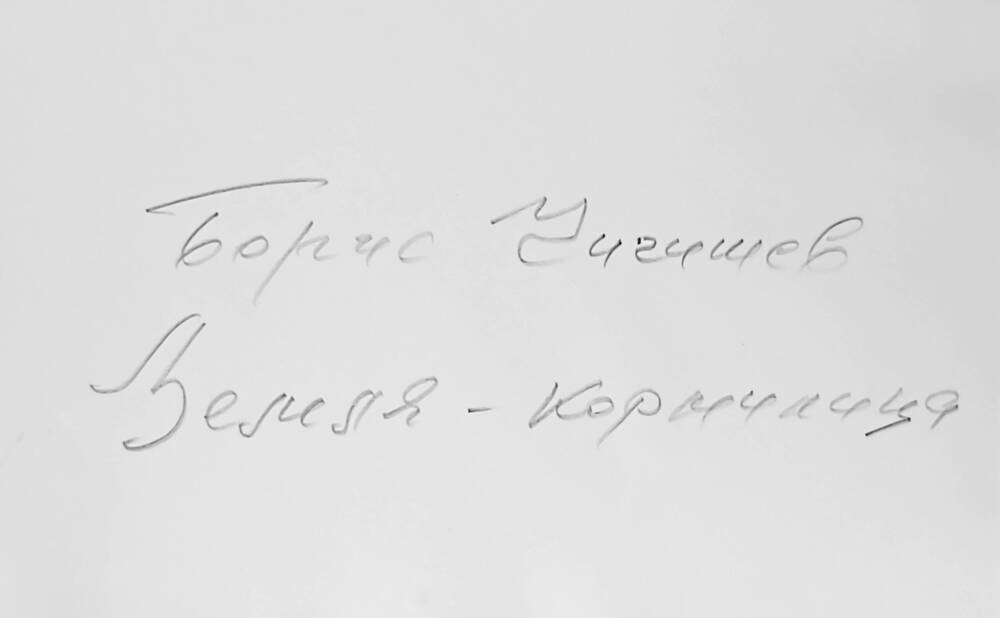 Борис Чигишев
Земля - кормилица